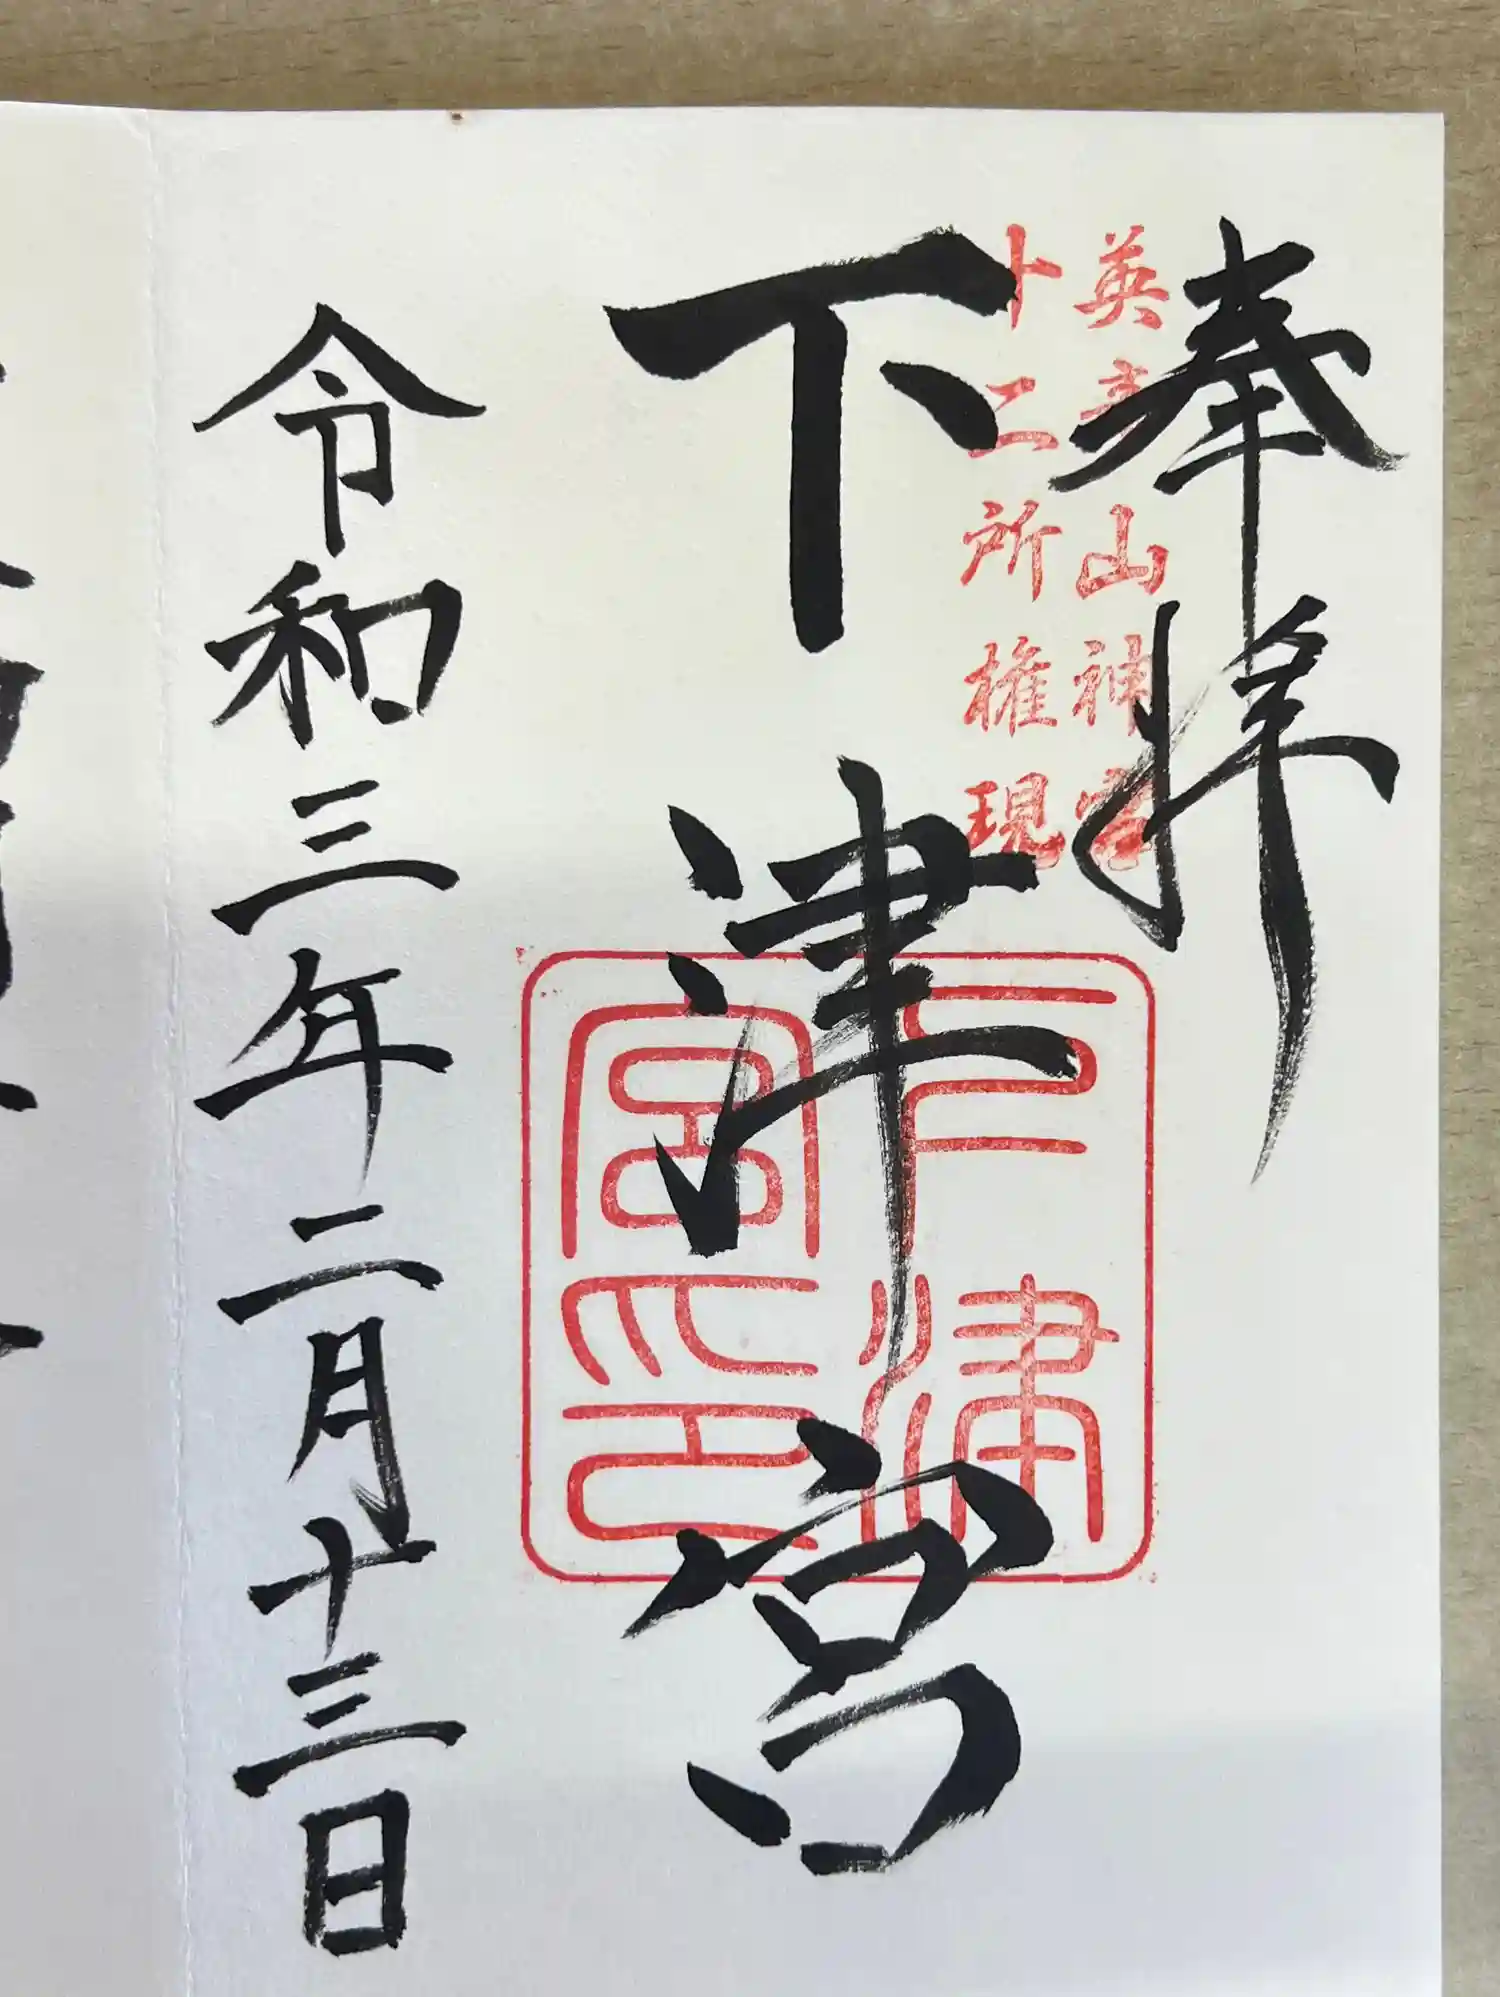 奉拝
英彦山神宮
十二所権現
下津宮
下津宮印
令和三年二月十三日